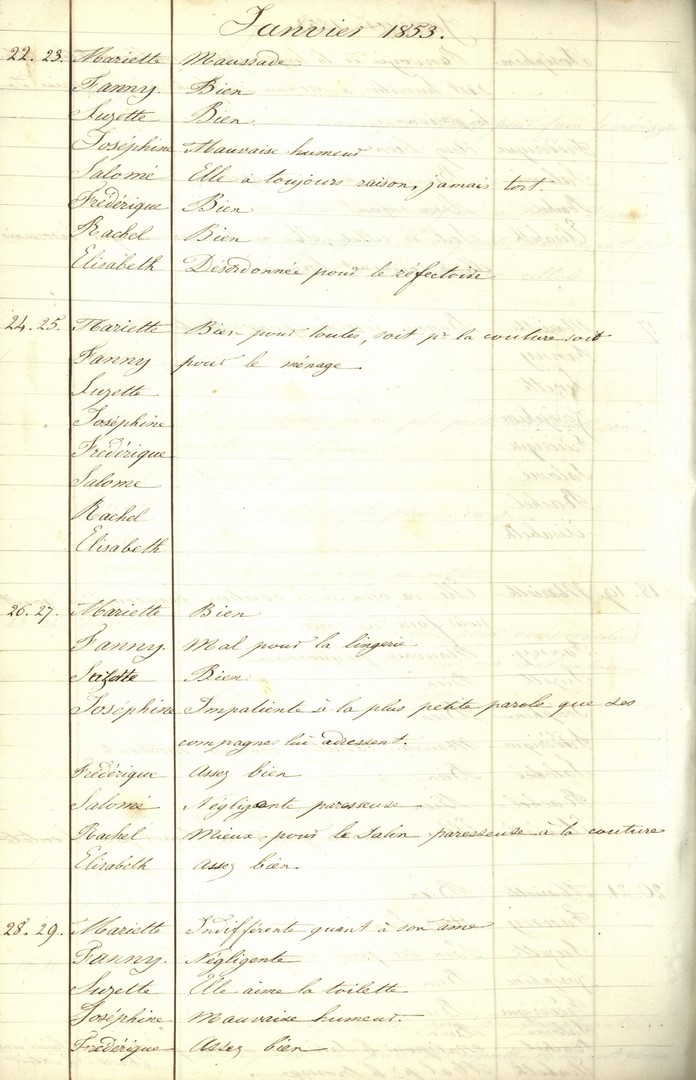 Janvier 1853.
22. 23. Mariette Maussade
Fanny. Bien
Suzette Bien
Joséphine Mauvaise humeur
Salomé Elle à toujours raison, jamais tort.
Frédérique Bien
Rachel Bien
Elisabeth Désordonnée pour le réfectoire
24. 25. Mariette Bien pour toutes, soit pr la couture soit
Fanny pour le ménage
Suzette
Joséphine
Frédérique
Salomé
Rachel
Elisabeth
26. 27. Mariette Bien
Fanny. Mal pour la lingerie
Suzette Bien
Joséphine Impatiente à la plus petite parole que ses
compagnes lui adressent.
Frédérique Assez bien
Salomé Négligente paresseuse
Rachel Mieux pour le Salin paresseuse à la couture
Elisabeth Assez bien.
28. 29. Mariette Indifférente quant à son âme
Fanny. Négligente
Suzette Elle aime la toilette
Joséphine Mauvaise humeur.
Frédérique Assez bien